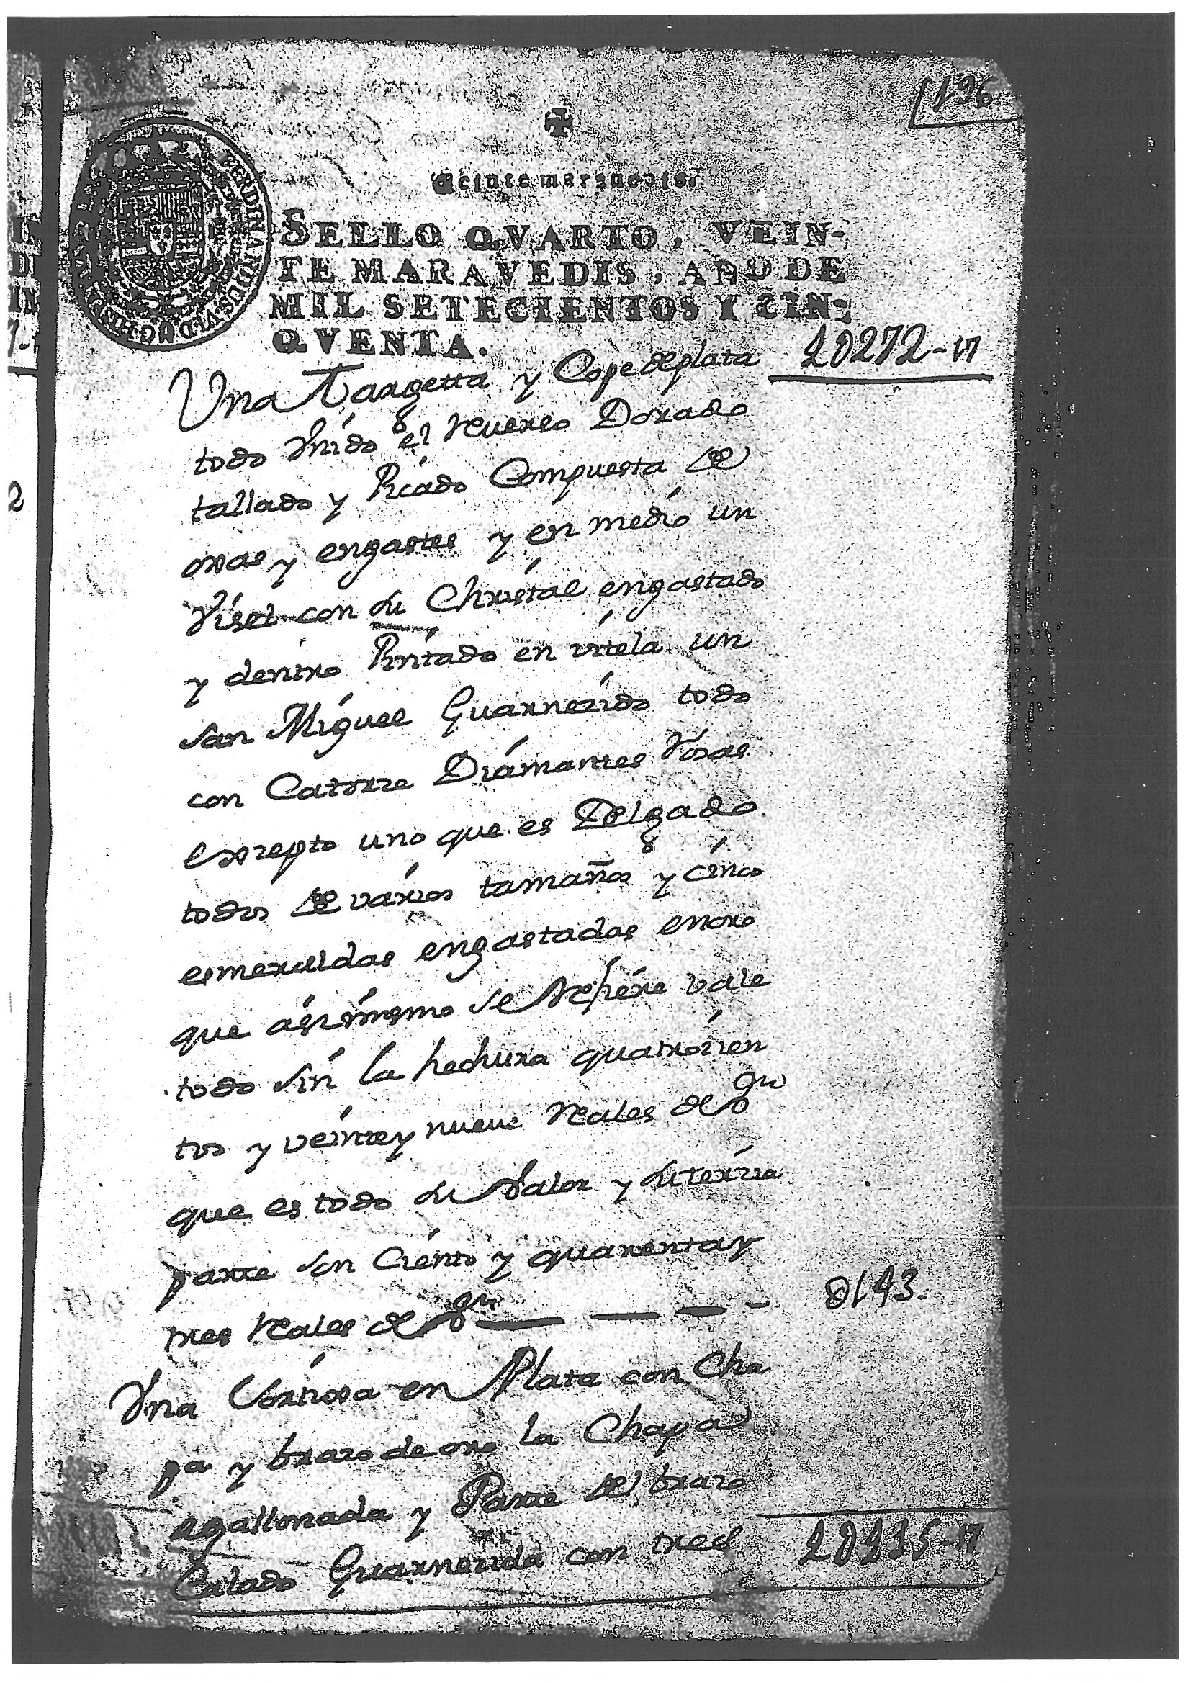 196
Veinte maravedis.
SELLO QVARTO, VEIN-
TE MARAVEDIS, AÑO DE
MIL SETECIENTOS Y CIN-
QVENTA.
FERDINANDUS VI D G HISPANIA
2θ272-17
Una Targetta y Cope deplata
todo Vnido el reverso Dorado
tallado y Picado Compuesta de
oxas y engastes y en medio un
Viset con su Christal engastado
y dentro Pintado en vitela un
san Miguel Guarnerido todo
con Catorze Diamantes Rosas
excepto uno que es Delgado
todos de varios tamaños y cinco
esmeraldas engastadas enoro
que assimismo se refiere vale
todo sin la hechura quatrozien
tos y veintey nueve Reales de
que es todo su valor y su terzia
parte son Ciento y quarentay
tres Reales de
θ143.
Vna Cortiosa en Plata con Cha
pa y brazo de oro la Chapa
agallonada y Parte del brazo
Calado Guarnerida con tres
2θ415-17